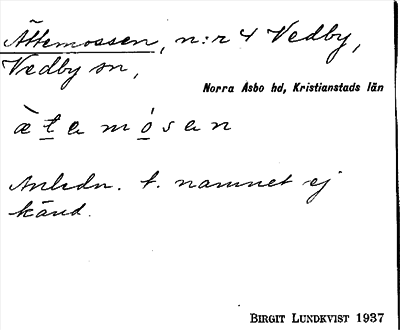 Ättemossen, n:r 4 Vedby,
Vedby sn,
Norra Åsbo hd, Kristianstads län
æ̀ t e m ó s e n
Anledn. t. namnet ej
känd.
BIRGIT LUNDKVIST 1937